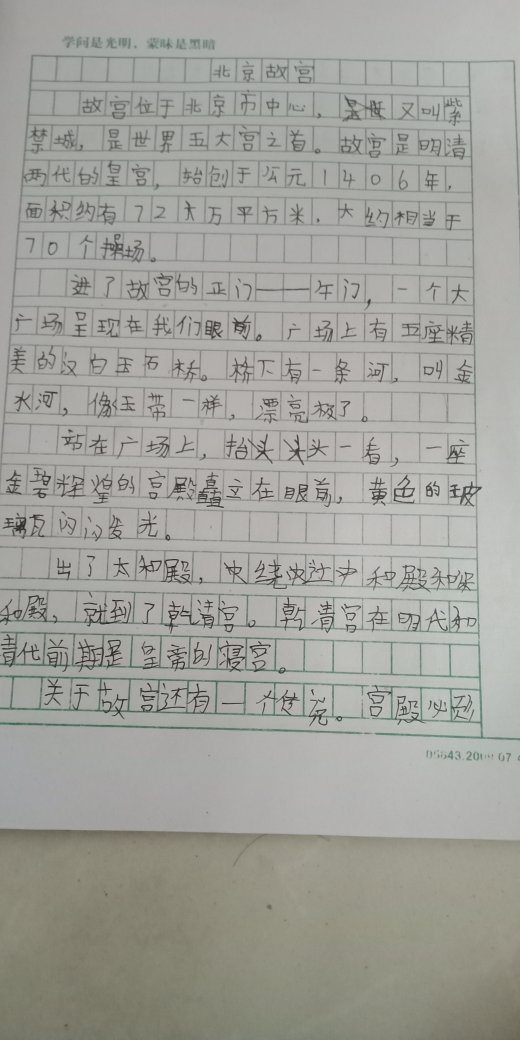 学问是光明，蒙昧是黑暗
北京故宫
故宫位于北京市中心，又叫紫
禁城，是世界五大宫之首。故宫是明清
两代的皇宫，始创于公元1406年，
面积约有72万平方米，大约相当于
70个操场。
进了故宫的正门——午门，一个大
广场呈现在我们眼前。广场上有五座精
美的汉白玉石桥。桥下有一条河，叫金
水河，像玉带一样，漂亮极了。
站在广场上，抬头一看，一座
金碧辉煌的宫殿矗立在眼前，黄色的玻
璃瓦闪闪发光。
出了太和殿，绕过中和殿和保
和殿，就到了乾清宫。乾清宫在明代和
清代前期是皇帝的寝宫。
关于故宫还有一个传说。宫殿必须
05643.2009.07